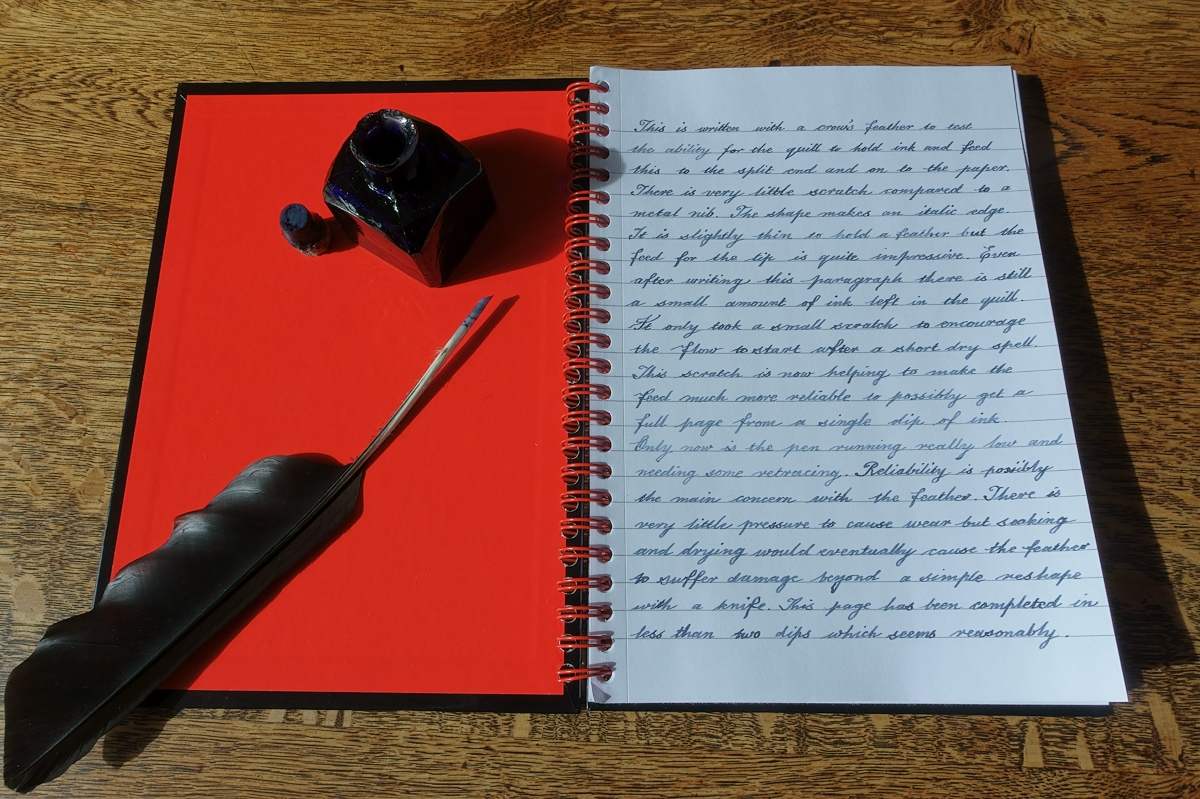 This is written with a crow's feather to test
the ability for the quill to hold ink and feed
this to the split end and on to the paper.
There is very little scratch compared to a
metal nib. The shape makes an italic edge.
It is slightly thin to hold a feather but the
feed for the tip is quite impressive. Even
after writing this paragraph there is still
a small amount of ink left in the quill.
It only took a small scratch to encourage
the flow to start after a short dry spell.
This scratch is now helping to make the
feed much more reliable to possibly get a
full page from a single dip of ink
Only now is the pen running really low and
needing some retracing. Reliability is possibly
the main concern with the feather. There is
very little pressure to cause wear but soaking
and drying would eventually cause the feather
to suffer damage beyond a simple reshape
with a knife. This page has been completed in
less than two dips which seems reasonably.